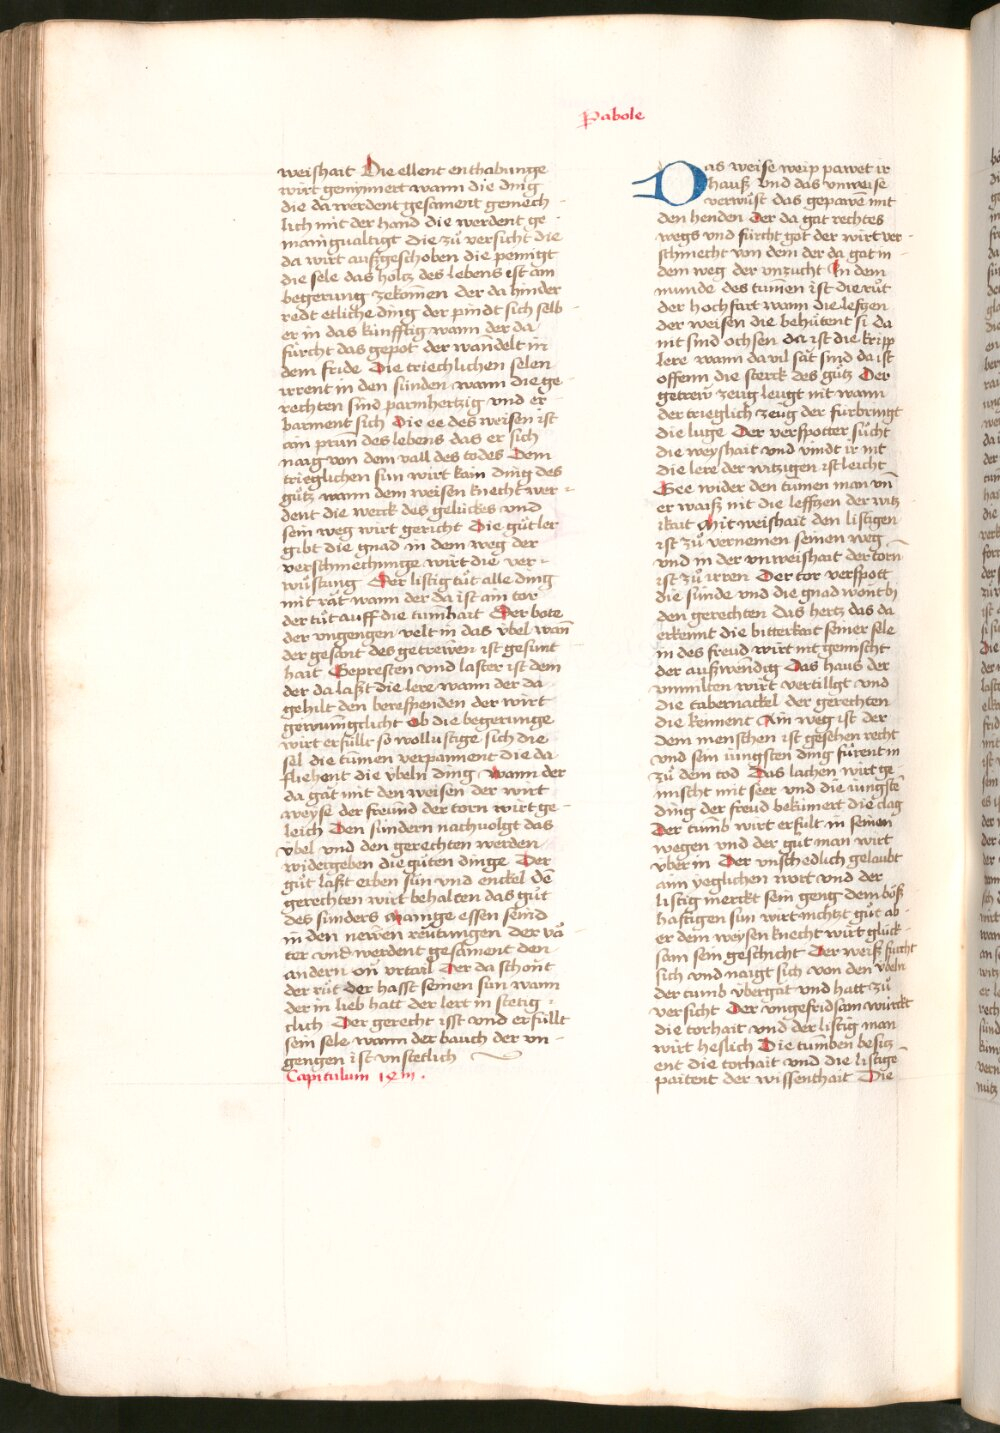 Pabole
weishait Die ellent enthabunge
wirt gemynnert wann die ding
die da werdent gesament gemech
lich mit der hand die werdent ge
manigualtigt die zů versicht die
da wirt außgeschoben die peinigt
die sele das holtz des lebens ist ain
begerung zekomen der da hinder
redt etliche ding der pindt sich selb
er in das künfftig wann der da
fürcht das gepot der wandelt in
dem fride Die triechlichen selen
irrent in den sünden wann die ge
rechten sind parmhertzig vnd er
barment sich Die ee des weisen ist
ain prun des lebens das er sich
naig von dem vall des todes Dem
trieglichen sun wirt kain ding des
gůtz wann dem weisen knecht wer
dent die werck des gelückes vnd
sein weg wirt gericht Die gůt ler
gibt die gnad in dem weg der
verschmechunge wirt die ver
wůstung Der listig tůt alle ding
mit rāt wann der da ist ain tor
der tůt auff die tumhait Der bote
der vngengen velt in das übel wan̄
der gesant des getrewen ist gesunt
hait Gepresten vnd laster ist dem
der da laßt die lere wann der da
gehilt den berefsenden der wirt
gewunigclicht Ob die begerunge
wirt erfüllt so wollustige sich die
sel die tumen verpannent die da
fliehent die übeln ding wann der
da gāt mit den weisen der wirt
weyse der freund der torn wirt ge
leich Den sündern nachuolgt das
übel vnd den gerechten werden
widergeben die gůten dinge Der
gůt laßt erben sün vnd enckel De
gerechten wirt behalten das gůt
des sünders Mange essen seind
in den newen reütungen der vā
ter vnd werdent gesament den
andern on vrtail Der da schont
der růt der hasst seinen sun wann
der in lieb hatt der lert in stetig
clich Der gerecht isst vnd erfüllt
sein sele wann der bauch der vn
gengen ist vnsetlich
Capitulum xiiii.
Das weise weip pawet ir
hauß vnd das vnweise
verwůst das gepawē mit
den henden Der da gat rechtes
wegs vnd fürcht got der wirt ver
schmecht von dem der da gat in
dem weg der vnzucht In dem
munde des tumen ist die růt
der hochfart wann die lefzen
der weisen die behütent si da
nit sind ochsen da ist die kripp
lere wann da vil sāt sind da ist
offenn die sterck des gůtz Der
getrew zeug leugt nit wann
der trieglich zeüg der fürbringt
die luge Der verspotter sůcht
die weyshait vnd vindt ir nit
die lere der witzigen ist leicht
Gee wider den tumen man vn̄
er waiß nit die leffzen der witz
ikait Mit weishait den listigen
ist zů vernemen seinen weg
vnd in der vnweishait der torn
ist zů irren Der tor verspott
die sünde vnd die gnad wont by
den gerechten das hertz das da
erkennt die bitterkait seiner sele
in des freud wirt nit gemischt
der außwendig Das haus der
vnmilten wirt vertillgt vnd
die tabernackel der gerechten
die keiment Ain weg ist der
dem menschen ist gesehen recht
vnd sein iungsten ding fürent in
zů dem tod Das lachen wirt ge
mischt mit seer vnd die iungste
ding der freud bekümert die clag
Der tumb wirt erfult in seinen
wegen vnd der gůt man wirt
über in Der vnschedlich gelaubt
aim yeglichen wort vnd der
listig merckt sein geng dem böß
hafftigen sun wirt nichtzt gůt ab
er dem weysen knecht wirt glück
sam sein geschicht Der weiß fürcht
sich vnd naigt sich von den übeln
der tumb übergāt vnd hatt zů
versicht Der vngefridsam würckt
die torhait vnd der listig man
wirt heslich Die tumben besitz
ent die torhait vnd die listige
paitent der wissenthait Die